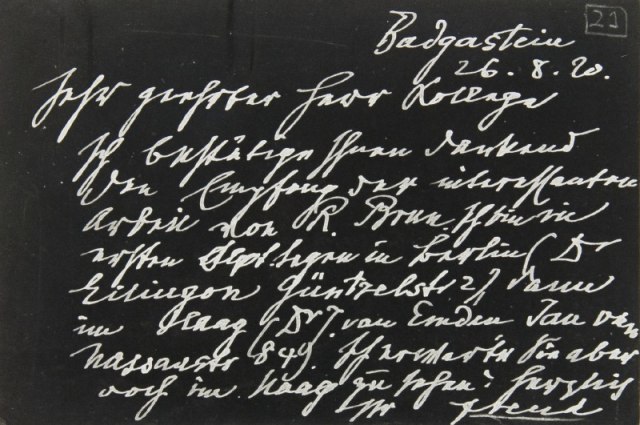 21
Badgastein
26. 8. 20.
Sehr geehrter Herr Kollege
Ich bestätige Ihnen dankend
den Empfang der interessanten
Arbeit von R. Brun. Ich bin in
ersten Sept tagen in Berlin (Dr
Eitingon Güntzelstr 2) dann
im Haag (Dr J. van Emden Jan van
Nassaustr 84). Ich erwarte Sie aber
noch im Haag zu sehen? Herzlich
Ihr Freud